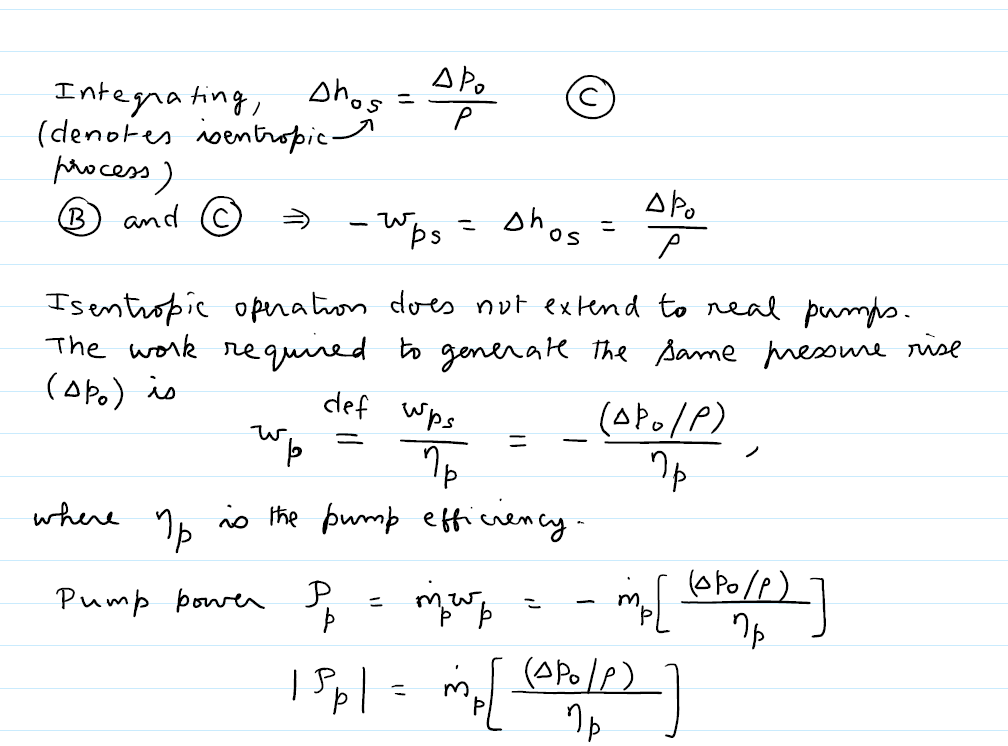 Integrating, Δh₀ₛ = Δp₀/ρ Ⓒ
(denotes isentropic
process)
Ⓑ and Ⓒ ⇒ -w_ps = Δh₀ₛ = Δp₀/ρ
Isentropic operation does not extend to real pumps.
The work required to generate the same pressure rise
(Δp₀) is
w_p def= w_ps/η_p = -(Δp₀/ρ)/η_p,
where η_p is the pump efficiency.
Pump power P_p = ṁ_p w_p = -ṁ_p[(Δp₀/ρ)/η_p]
|P_p| = ṁ_p[(Δp₀/ρ)/η_p]